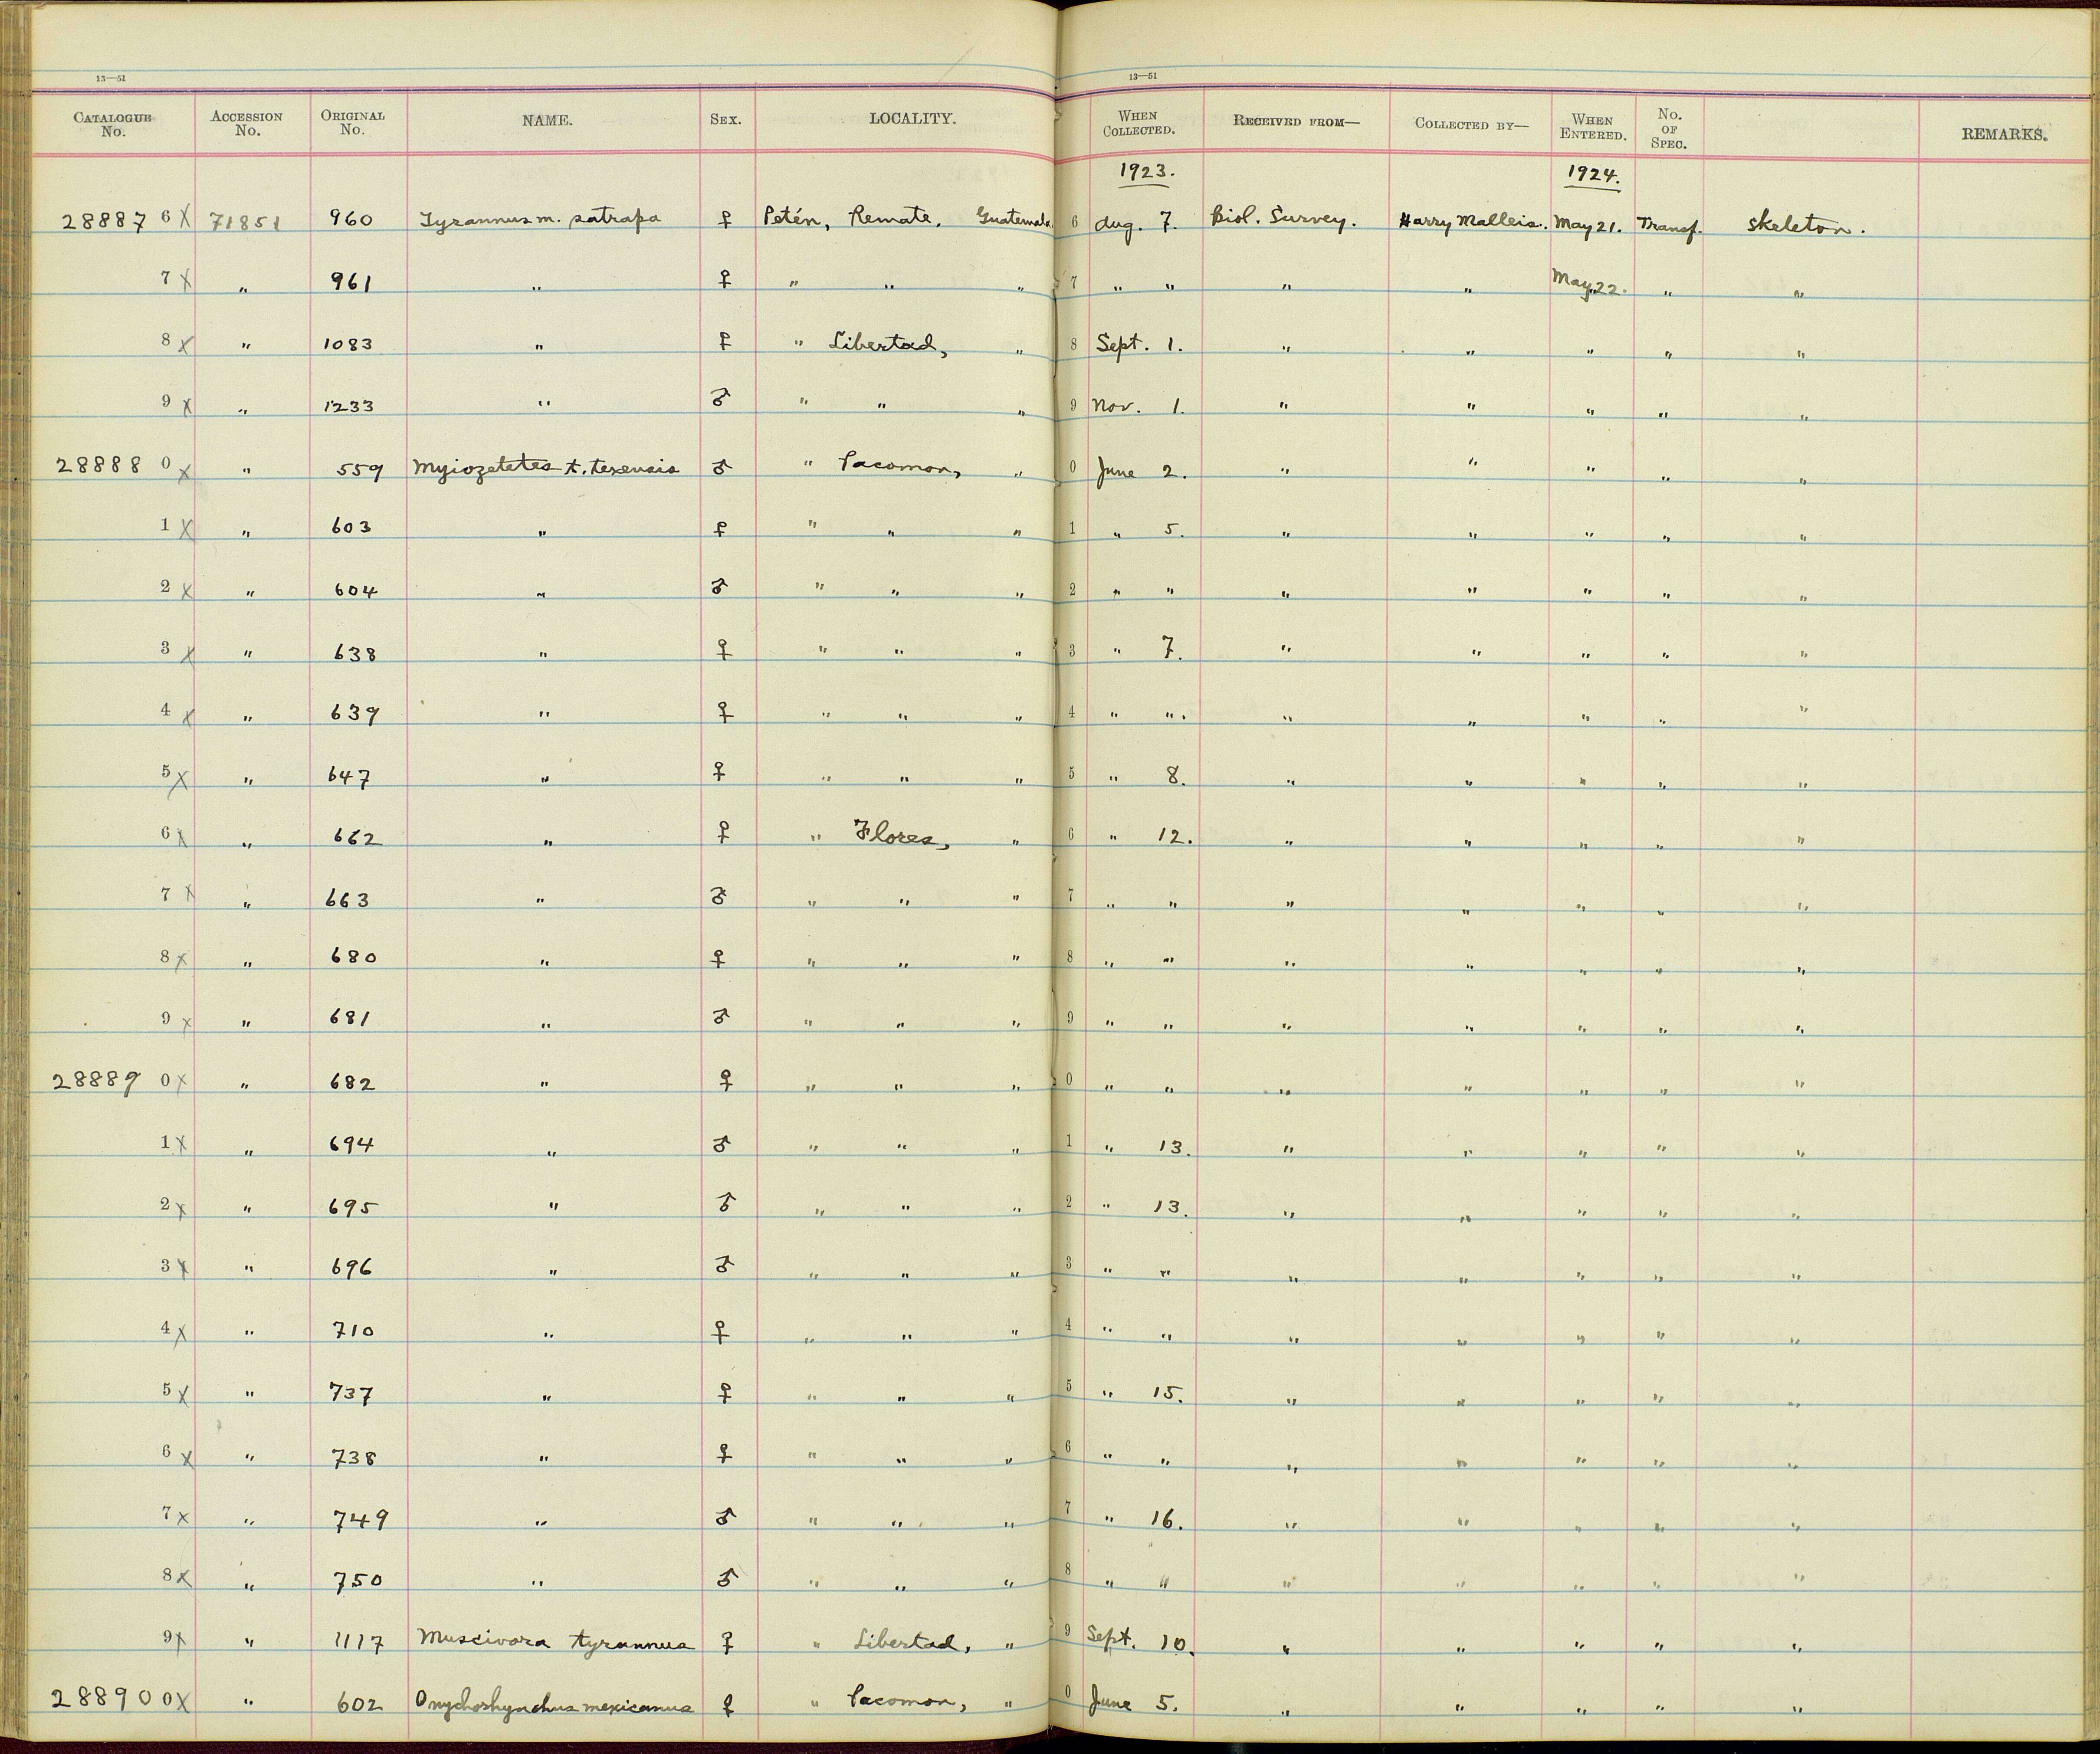 13—51 13—51
CATALOGUE No. ACCESSION No. ORIGINAL No. NAME. SEX. LOCALITY. WHEN COLLECTED. RECEIVED FROM— COLLECTED BY— WHEN ENTERED. No. OF SPEC. REMARKS.
1923. 1924.
28887 6 X 71851 960 Tyrannus m. satrapa ♀ Petén, Remate, Guatemala 6 Aug. 7. Biol. Survey. Harry Malleis. May 21. Transf. Skeleton.
7 X " 961 " ♀ " " " 7 " " " " May 22. " "
8 X " 1083 " ♀ " Libertad, " 8 Sept. 1. " " " " "
9 X " 1233 " ♂ " " " 9 Nov. 1. " " " " "
28888 0 X " 559 Myiozetetes t. texensis ♂ " Pacomon, " 0 June 2. " " " " "
1 X " 603 " ♀ " " " 1 " 5. " " " " "
2 X " 604 " ♂ " " " 2 " " " " " " "
3 X " 638 " ♀ " " " 3 " 7. " " " " "
4 X " 639 " ♀ " " " 4 " ". " " " " "
5 X " 647 " ♀ " " " 5 " 8. " " " " "
6 X " 662 " ♀ " Flores, " 6 " 12. " " " " "
7 X " 663 " ♂ " " " 7 " " " " " " "
8 X " 680 " ♀ " " " 8 " " " " " " "
9 X " 681 " ♂ " " " 9 " " " " " " "
28889 0 X " 682 " ♀ " " " 0 " " " " " " "
1 X " 694 " ♂ " " " 1 " 13. " " " " "
2 X " 695 " ♂ " " " 2 " 13. " " " " "
3 X " 696 " ♂ " " " 3 " " " " " " "
4 X " 710 " ♀ " " " 4 " " " " " " "
5 X " 737 " ♀ " " " 5 " 15. " " " " "
6 X " 738 " ♀ " " " 6 " " " " " " "
7 X " 749 " ♂ " " " 7 " 16. " " " " "
8 X " 750 " ♂ " " " 8 " " " " " " "
9 X " 1117 Muscivora tyrannus ♀ " Libertad, " 9 Sept. 10. " " " " "
28890 0 X " 602 Onychorhynchus mexicanus ♀ " Pacomon, " 0 June 5. " " " " "